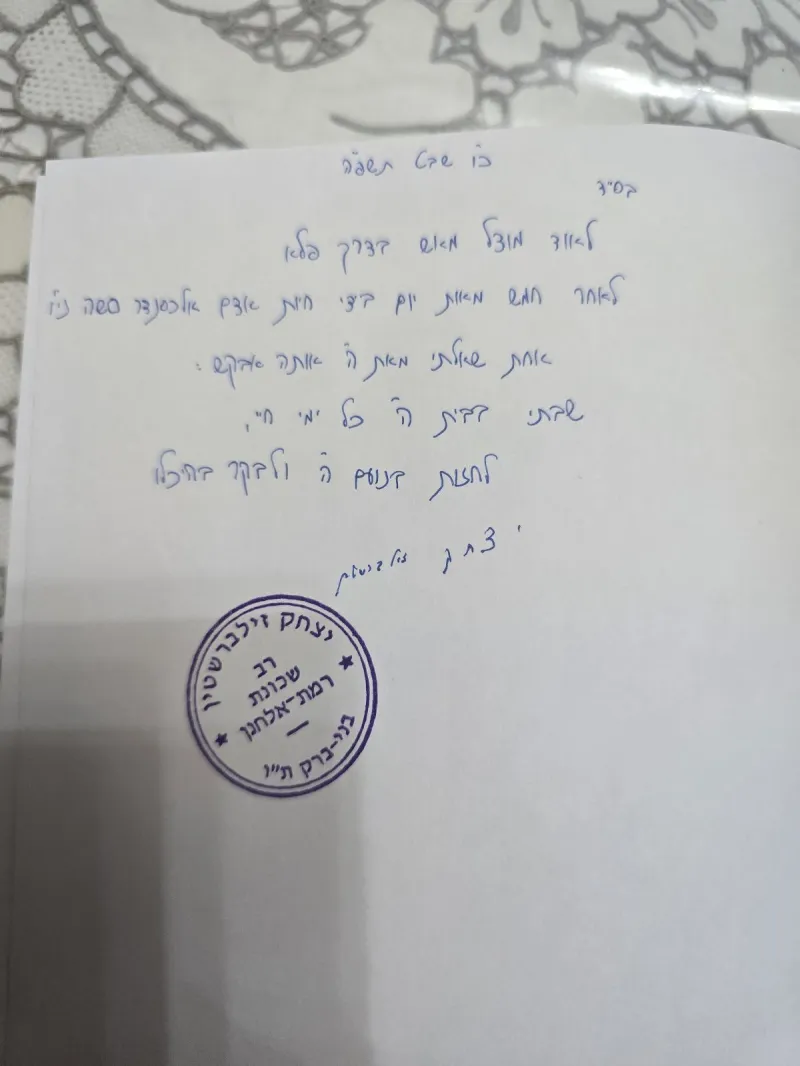 כ"ו שבט תשפ"ה
בס"ד
לאוד מוצל מאש בדרך פלא
לאחר חמש מאות יום בידי חיות אדם אלכסנדר סשה ני"ו
אחת שאלתי מאת ה' אותה אבקש:
שבתי בבית ה' כל ימי חיי,
לחזות בנועם ה' ולבקר בהיכלו
יצחק זילברשטין
יצחק זילברשטין
רב
שכונת
רמת-אלחנן
בני-ברק ת"ו